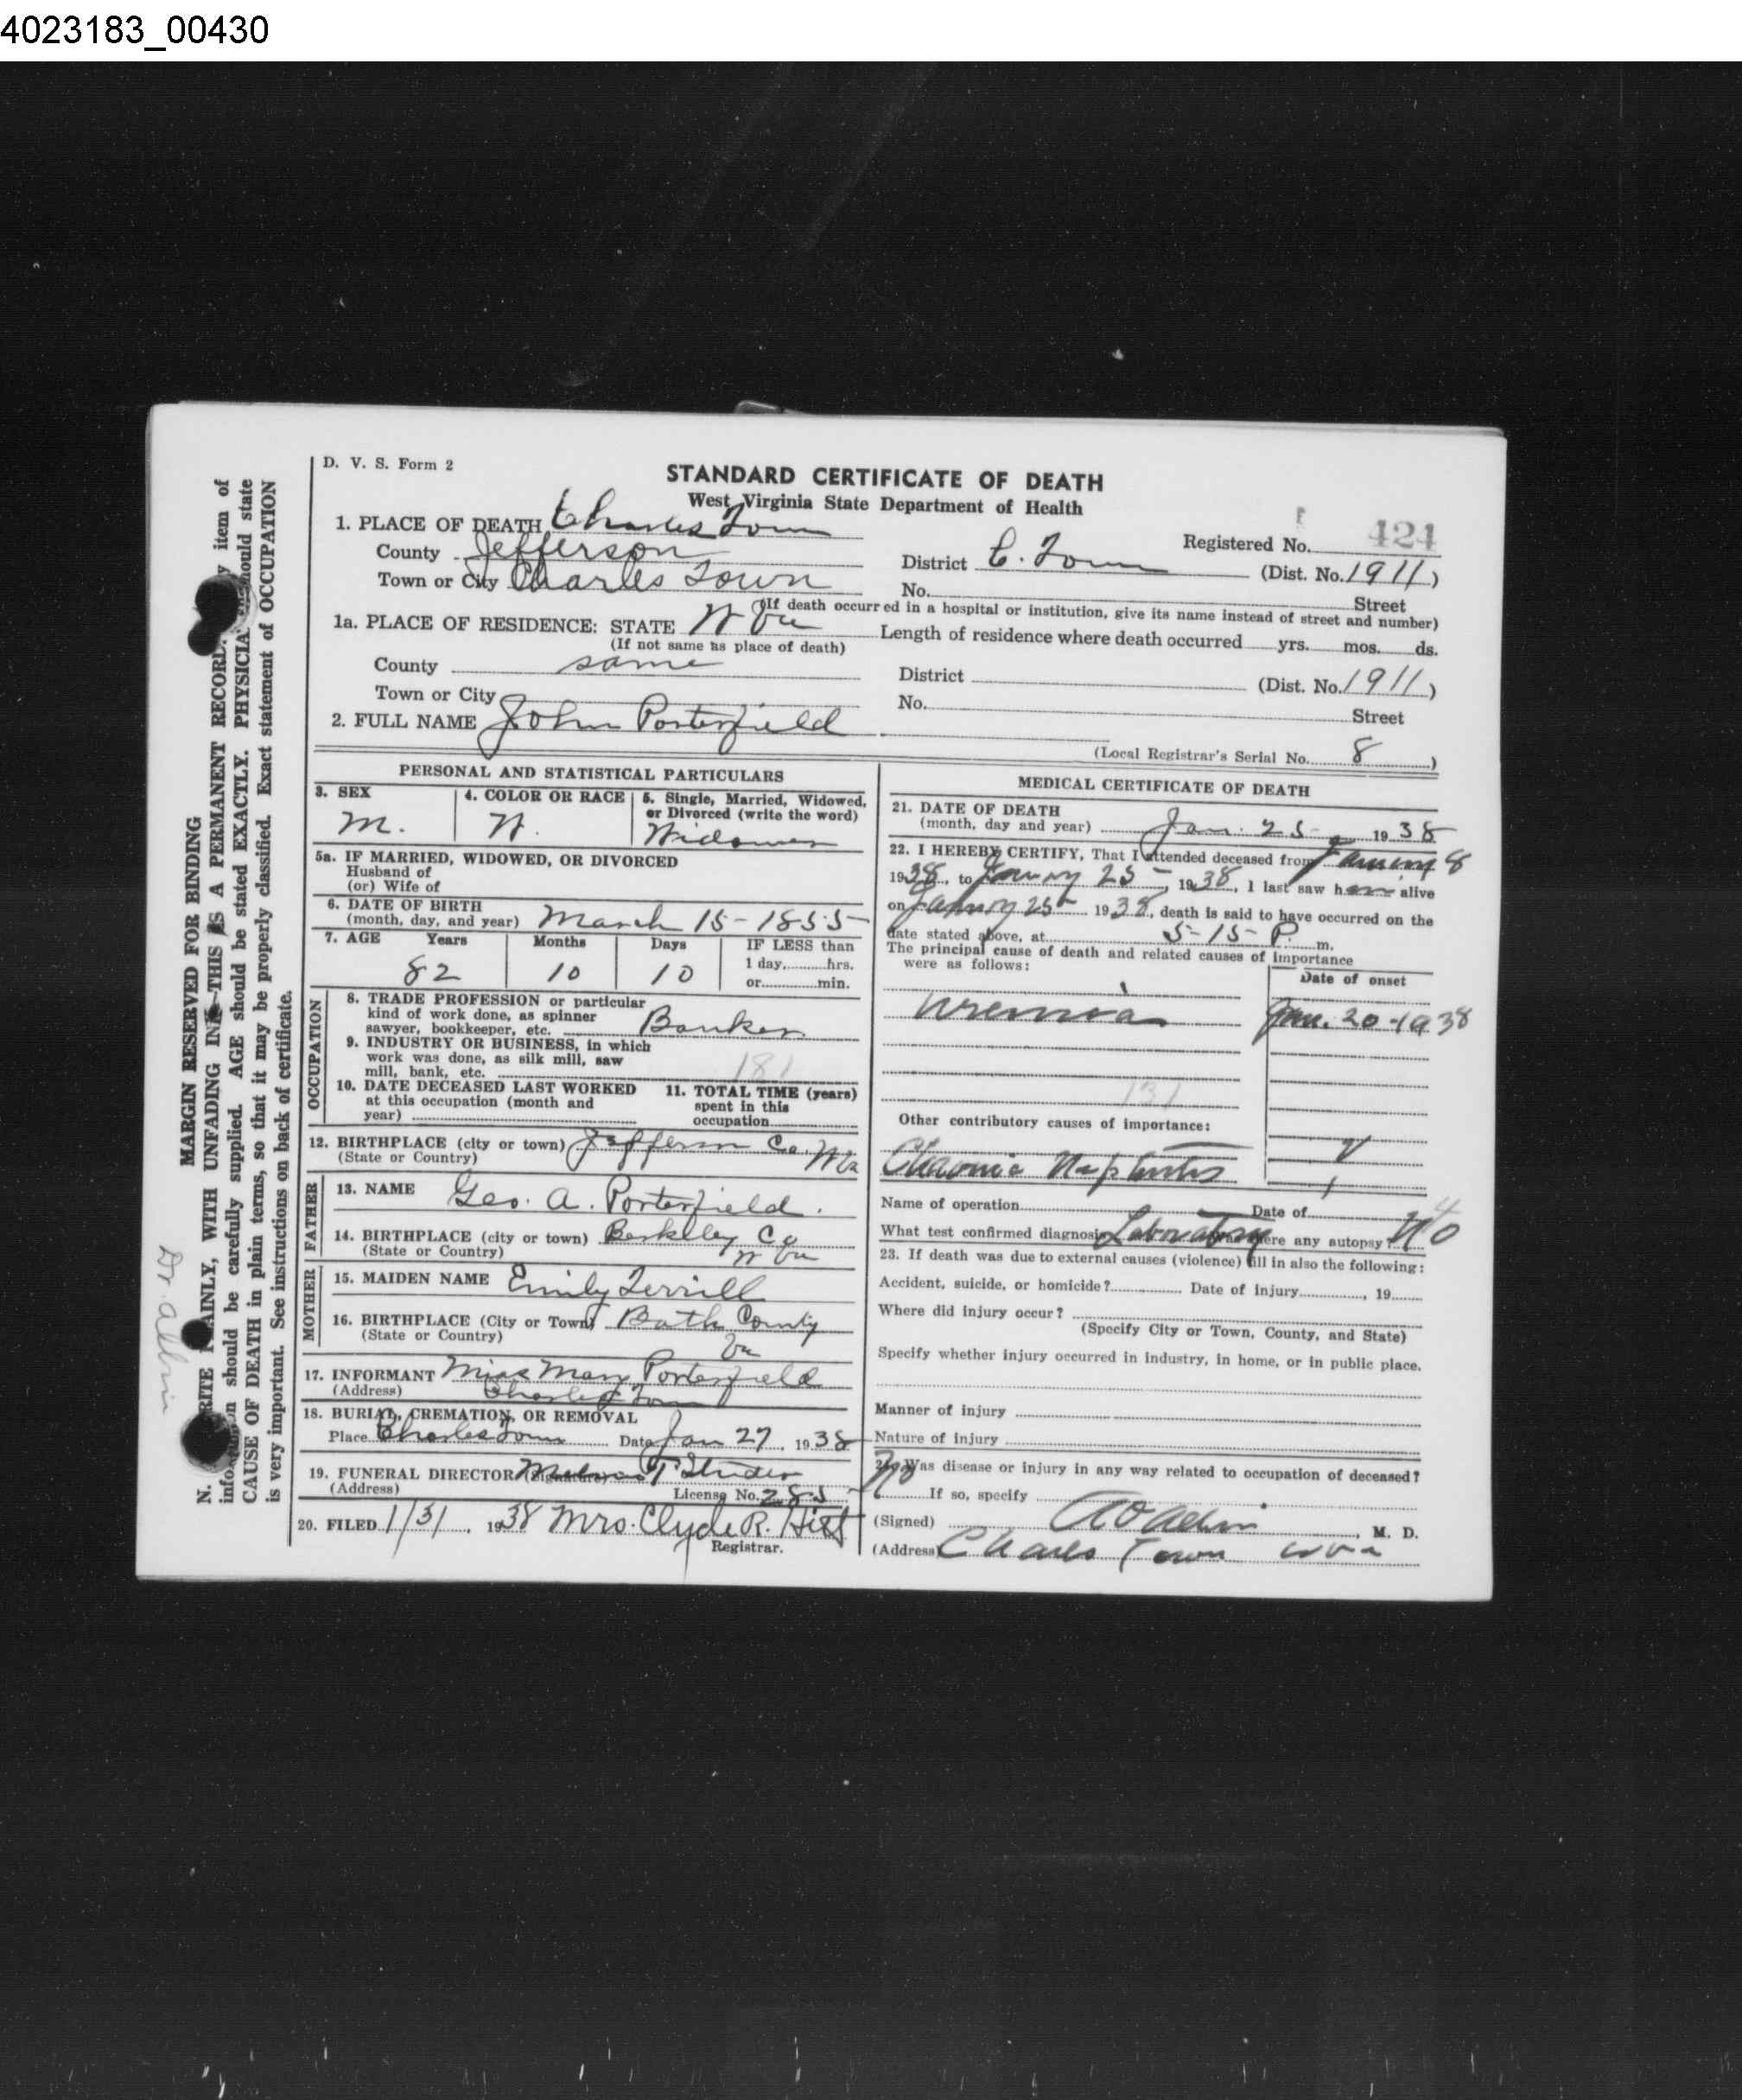 4023183_00430
D. V. S. Form 2
STANDARD CERTIFICATE OF DEATH
West Virginia State Department of Health
1. PLACE OF DEATH Charles Town
County Jefferson
Town or City Charles Town
Registered No. 424
District C. Town (Dist. No. 1911)
No. Street
(If death occurred in a hospital or institution, give its name instead of street and number)
1a. PLACE OF RESIDENCE: STATE W Va
(If not same as place of death)
Length of residence where death occurred yrs. mos. ds.
County same
District (Dist. No. 1911)
Town or City
No. Street
2. FULL NAME John Porterfield
(Local Registrar's Serial No. 8)
PERSONAL AND STATISTICAL PARTICULARS
3. SEX
M.
4. COLOR OR RACE
W.
5. Single, Married, Widowed,
or Divorced (write the word)
Widower
5a. IF MARRIED, WIDOWED, OR DIVORCED
Husband of
(or) Wife of
6. DATE OF BIRTH
(month, day, and year) March 15-1855
7. AGE Years Months Days IF LESS than
82 10 10 1 day, hrs.
or min.
OCCUPATION
8. TRADE PROFESSION or particular
kind of work done, as spinner
sawyer, bookkeeper, etc. Banker
9. INDUSTRY OR BUSINESS, in which
work was done, as silk mill, saw
mill, bank, etc. 181
10. DATE DECEASED LAST WORKED
at this occupation (month and
year)
11. TOTAL TIME (years)
spent in this
occupation
12. BIRTHPLACE (city or town) Jefferson Co. W Va
(State or Country)
FATHER
13. NAME Geo. A. Porterfield.
14. BIRTHPLACE (city or town) Berkeley Co
(State or Country) W Va
MOTHER
15. MAIDEN NAME Emily Terrill
16. BIRTHPLACE (City or Town) Bath County
(State or Country) Va
17. INFORMANT Miss Mary Porterfield
(Address) Charles Town
18. BURIAL, CREMATION, OR REMOVAL
Place Charles Town Date Jan 27, 1938
19. FUNERAL DIRECTOR (Signature) T. Strider
(Address) License No. 285
20. FILED 1/31, 1938 Mrs. Clyde R. Hiett
Registrar.
MEDICAL CERTIFICATE OF DEATH
21. DATE OF DEATH
(month, day and year) Jan. 25 1938
22. I HEREBY CERTIFY, That I attended deceased from January 8
1938, to January 25, 1938, I last saw him alive
on January 25th 1938, death is said to have occurred on the
date stated above, at 5-15 P. m.
The principal cause of death and related causes of importance
were as follows:
Date of onset
Uremia Jan. 20-1938
131
Other contributory causes of importance:
Chronic Nephritis
Name of operation Date of
What test confirmed diagnosis Laboratory Was there any autopsy? No
23. If death was due to external causes (violence) fill in also the following:
Accident, suicide, or homicide? Date of injury, 19
Where did injury occur?
(Specify City or Town, County, and State)
Specify whether injury occurred in industry, in home, or in public place.
Manner of injury
Nature of injury
24. Was disease or injury in any way related to occupation of deceased?
No If so, specify
(Signed) , M. D.
(Address) Charles Town W Va
MARGIN RESERVED FOR BINDING
N. WRITE PLAINLY, WITH UNFADING INK—THIS IS A PERMANENT RECORD. item of
information should be carefully supplied. AGE should be stated EXACTLY. PHYSICIA should state
CAUSE OF DEATH in plain terms, so that it may be properly classified. Exact statement of OCCUPATION
is very important. See instructions on back of certificate.
Dr. Albin